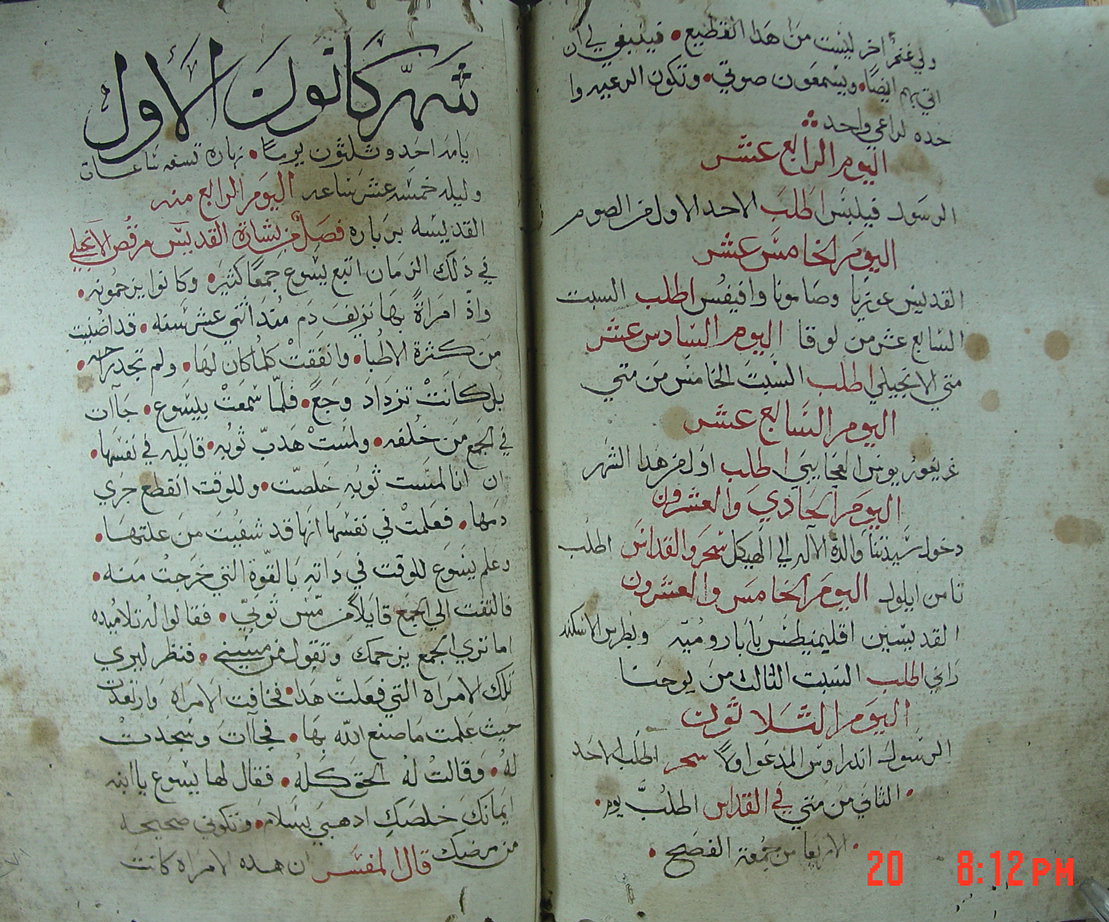 ولي غنم اخر ليست من هذا القطيع • فينبغي لي ان
اتي بهم ايضًا • ويسمعون صوتي • وتكون الرعيه وا
حده لراعي واحد
اليوم الرابع عشر
الرسول فيلبس اطلب الاحد الاول من الصوم
اليوم الخامس عشر
القديس عوزيا وصامونا وافيفس اطلب السبت
السابع عشر من لوقا اليوم السادس عشر
متي الانجيلي اطلب السبت الخامس من متي
اليوم السابع عشر
غريغوريوس العجايبي اطلب اول من هذا الشهر
اليوم الحادي والعشرون
دخول سيدتنا والدة الاله الي الهيكل سحر والقداس اطلب
ثامن ايلول اليوم الخامس والعشرون
القديسين اقليميطس بابا روميه وبطرس الاسكند
راني اطلب السبت الثالث من يوحنا
اليوم الثلاثون
الرسول اندراوس المدعو اولاً سحر اطلب الاحد
الثاني من متي في القداس اطلب يوم •
• الاربعا من جمعة الفصح •
شهر كانون الاول
ايامه احد وثلثون يومًا • نهاره تسعه ساعات
وليله خمسه عشر ساعه اليوم الرابع منه
القديسه برباره فصل من بشارة القديس مرقص الانجيلي
في ذلك الزمان اتبع يسوع جمعًا كثير • وكانوا يزحمونه •
واذ امراةً بها نزيف دم منذ اثني عشر سنه • قد اضنيت
من كثرة الاطبا • وانفقت كلما كان لها • ولم تجد راحه •
بل كانت تزداد وجع • فلما سمعت بيسوع • جاات
في الجمع من خلفه • ولمست هدب ثوبه • قايله في نفسها •
ان انا لمست ثوبه خلصت • وللوقت انقطع جري
دمها • فعلمت في نفسها انها قد شفيت من علتها •
وعلم يسوع للوقت في ذاته بالقوه التي خرجت منه •
فالتفت الي الجمع قايلاً من مس ثوبي • فقالوا له تلاميده
اما تري الجمع يزحمك وتقول من مسني • فنظر ليري
تلك الامراه التي فعلت هدا • فخافت الامراه وارتعدت
حيث علمت ما صنع الله بها • فجاات وسجدت
له • وقالت له الحق كله • فقال لها يسوع يا ابنه
ايمانك خلصك ادهبي بسلام • وتكوني صحيحه
من مرضك قال المفسر ان هده الامراه كانت
20 8:12 PM